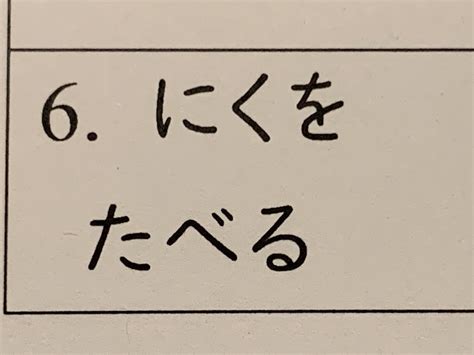 6. にくを
たべる